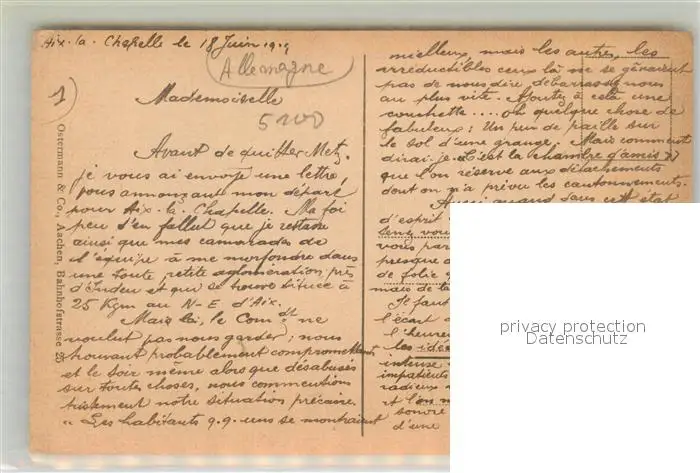 Aix-la-Chapelle le 18 Juin 1919
Allemagne
1)
Mademoiselle
5100
Avant de quitter Metz,
je vous ai envoyé une lettre,
vous annonçant mon départ
pour Aix-la-Chapelle. Ma foi
peu s'en fallut que je restasse
ainsi que mes camarades de
l'équipe à me morfondre dans
une toute petite aglomération près
d'Inden et qui se trouve située à
25 Kgm au N-E d'Aix.
Mais là, le Comdt ne
voulut pas nous garder; nous
trouvant probablement compromettants
et le soir même alors que désabusés
sur toutes choses, nous commentions
tristement notre situation précaire.
" Les habitants q.q. uns se montraient
Ostermann & Co., Aachen, Bahnhofstrasse 25
mielleux, mais les autres, les
irréductibles ceux là ne se gênaient
pas de nous dire, débarrassez nous
au plus vite. Ajoutez à cela une
couchette .... oh quelque chose de
fabuleux: Un peu de paille sur
le sol d'une grange. Mais comment
dirai-je c'est la chambre d'amis
que l'on réserve aux détachements
dont on n'a prévu les cantonnements.
Aussi quand dans cet état
d'esprit
vous par
presque
de folie
mais de
Il faut
l'écart
l'heure
les idées
intense
impatients
radieux
et l'on
sonore
d'une
privacy protection
Datenschutz